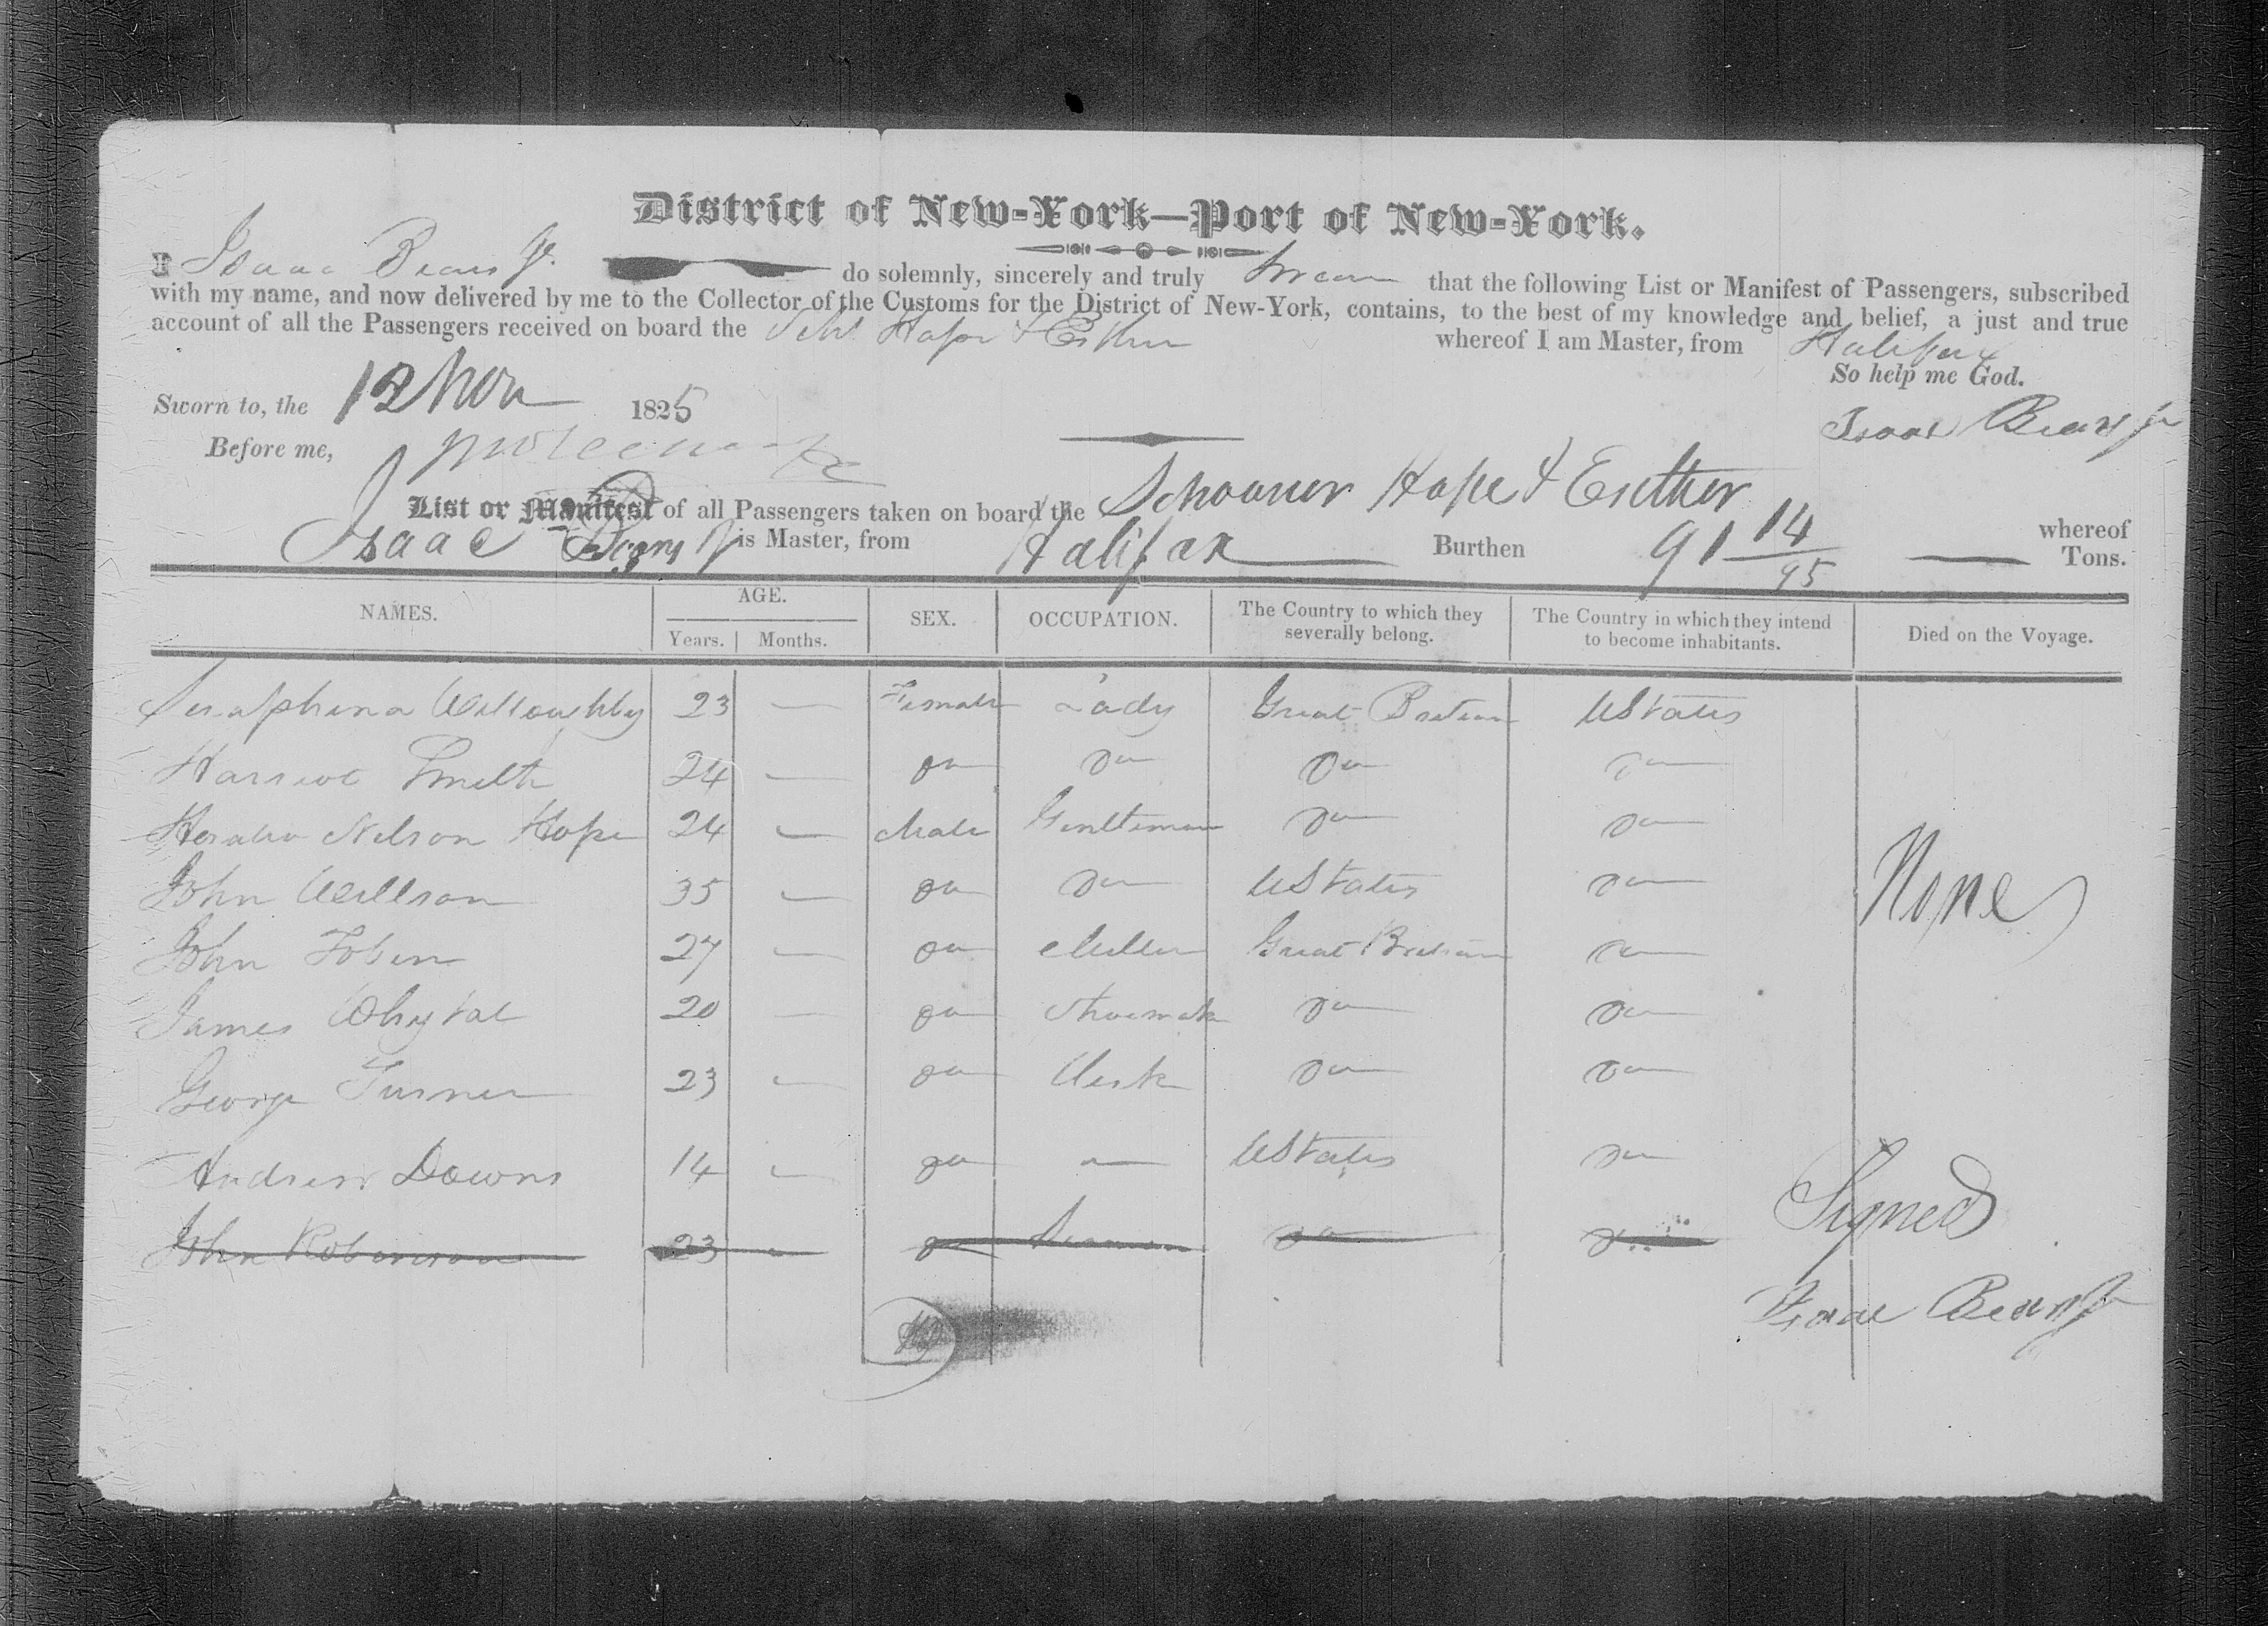 District of New-York—Port of New-York.
I Isaac Bears Jr. do solemnly, sincerely and truly Swear that the following List or Manifest of Passengers, subscribed
with my name, and now delivered by me to the Collector of the Customs for the District of New-York, contains, to the best of my knowledge and belief, a just and true
account of all the Passengers received on board the Schr Hope & Esther whereof I am Master, from Halifax
So help me God.
Sworn to, the 12 Nov 1825
Isaac Bears Jr
Before me,
List or Manifest of all Passengers taken on board the Schooner Hope & Esther whereof
Isaac Bears Jr is Master, from Halifax Burthen 91 14/95 Tons.
NAMES. AGE. Years. Months. SEX. OCCUPATION. The Country to which they severally belong. The Country in which they intend to become inhabitants. Died on the Voyage.
Seraphina Willoughby 23 — Female Lady Great Britain UStates
Harriot Smith 24 — Do Do Do Do
Horatio Nelson Hope 24 — Male Gentleman Do Do
John Willson 35 — Do Do UStates Do None
John Tobin 27 — Do Miller Great Britain Do
James Whytal 20 — Do Shoemak Do Do
George Turner 23 — Do Clerk Do Do
Andrew Downs 14 — Do — UStates Do
John Robinson 23 — Do Seaman Do Do
Signed
Isaac Bears Jr